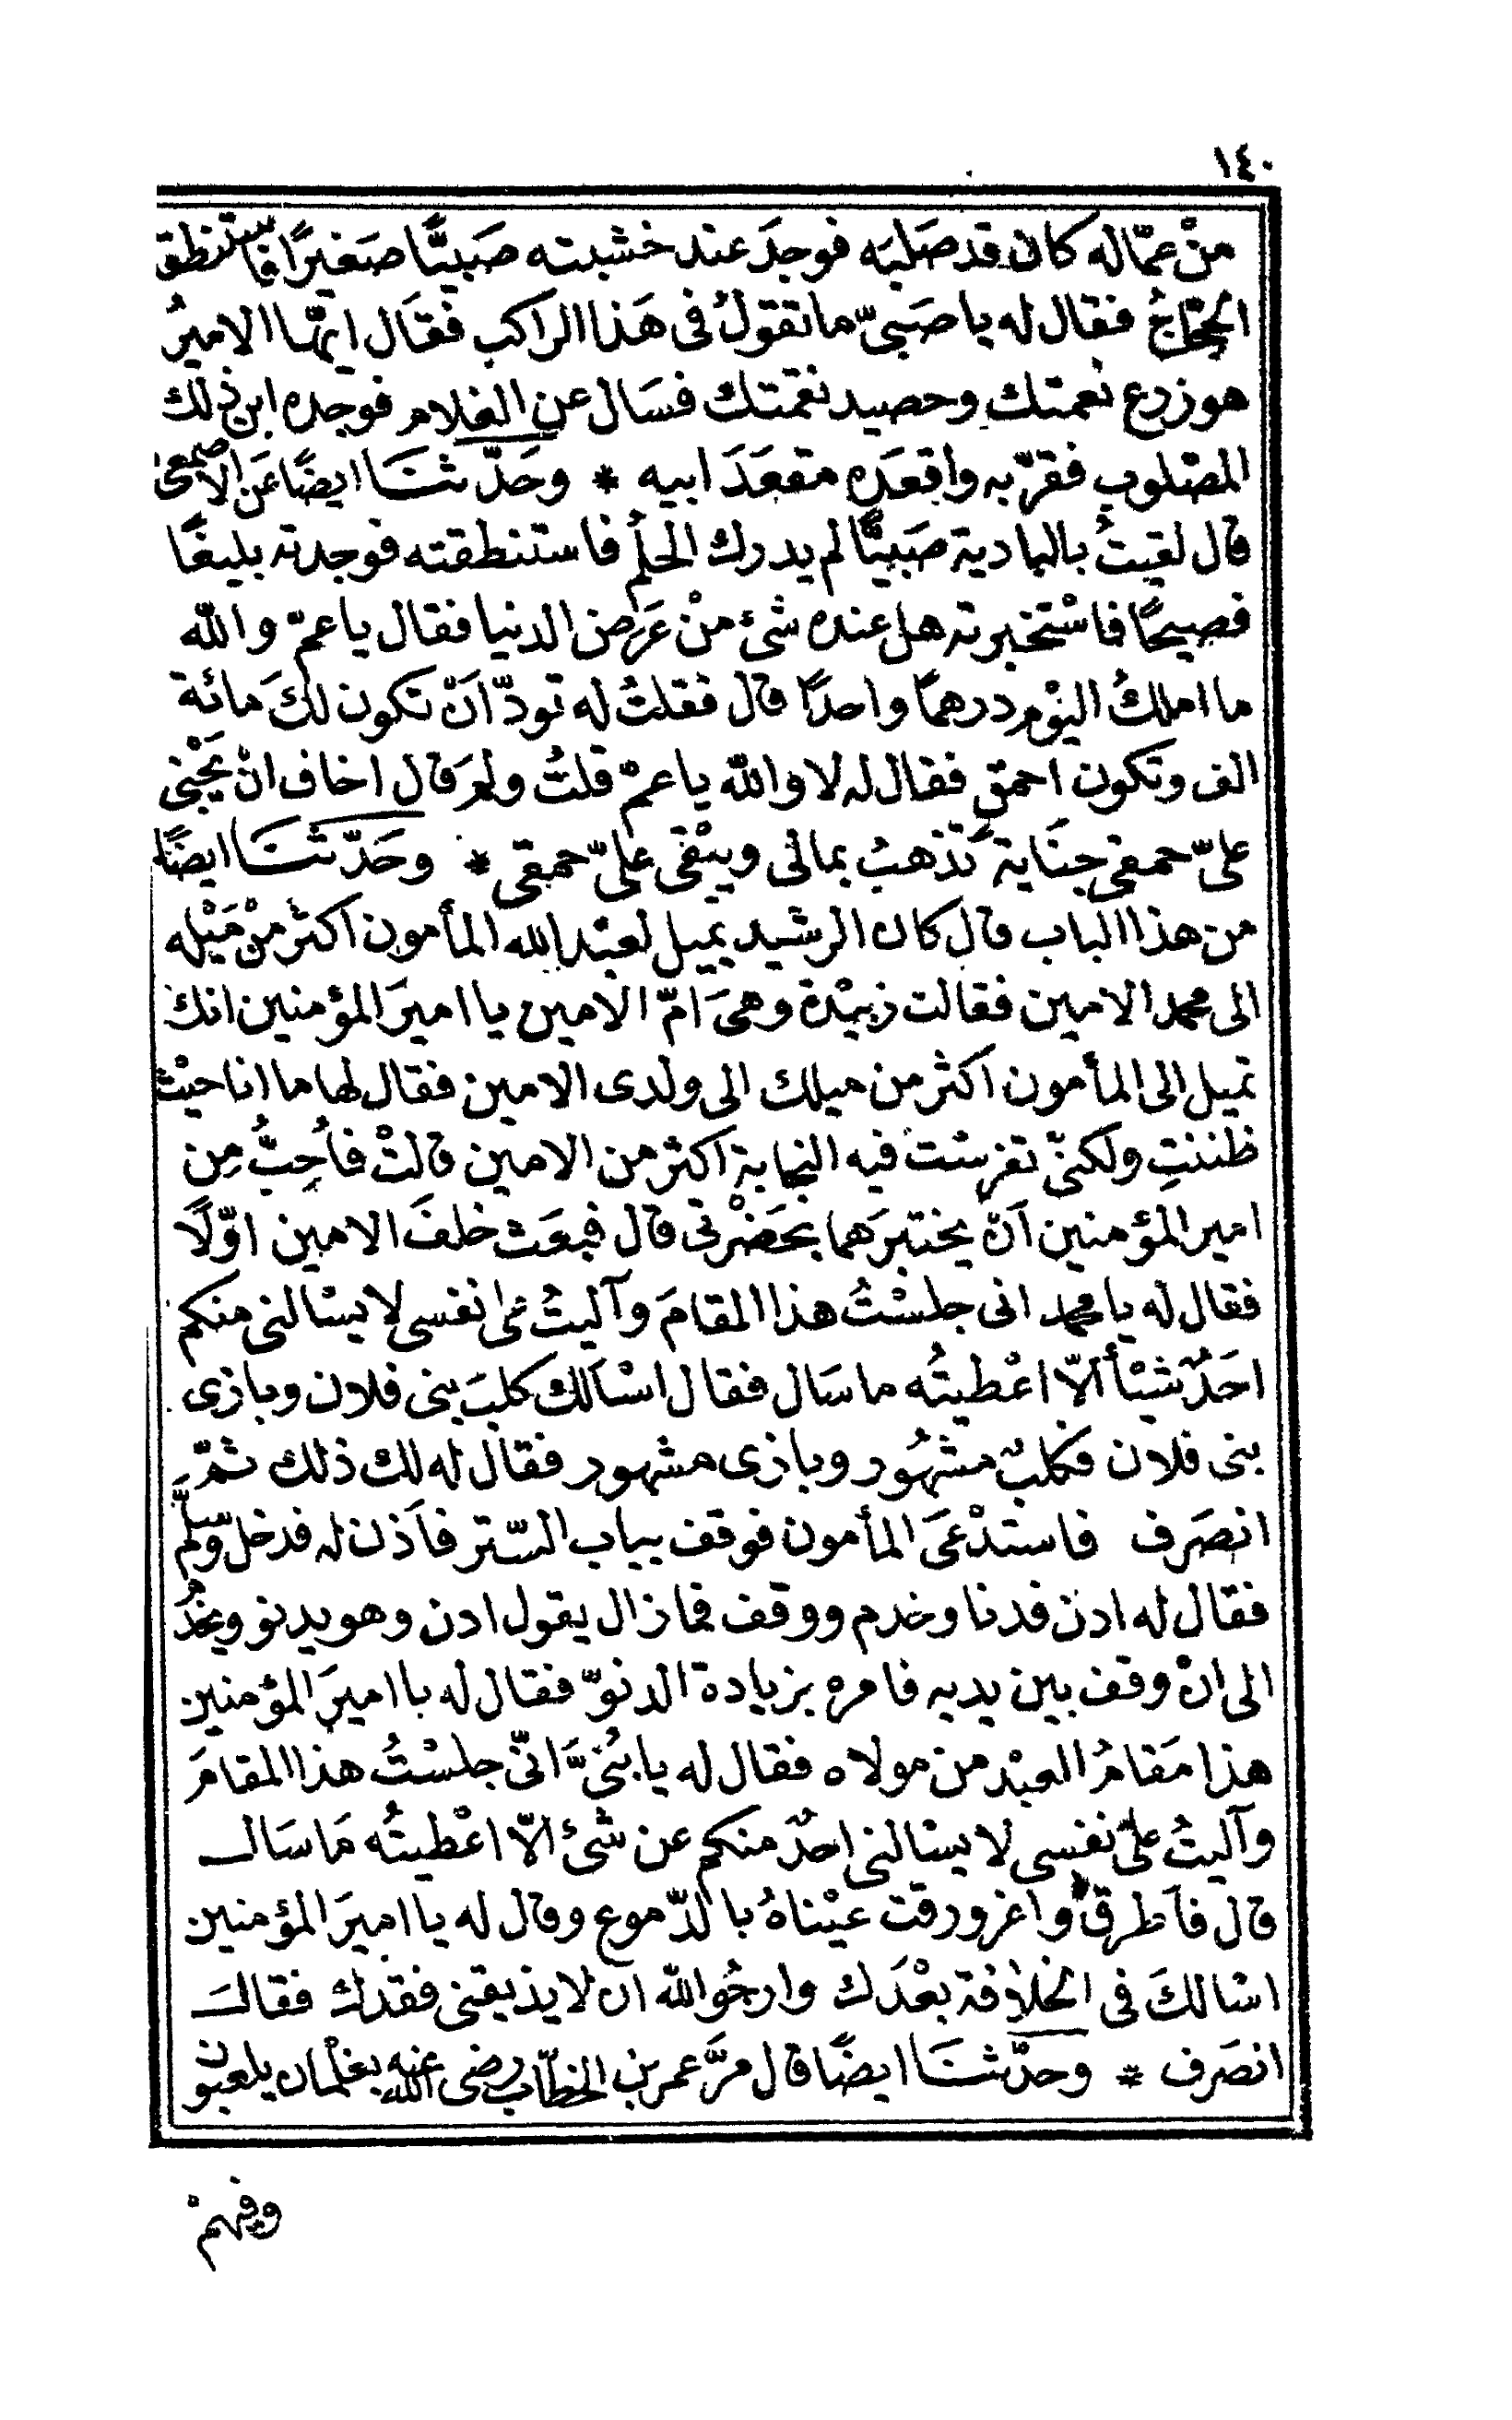 ١٤٠
منْ عمّاله كان قد صَلبَه فوجدَ عند خشبته صَبيًّا صَغيرًا فاستنطق
الحجّاجُ فقال له يا صَبىّ ما تقولُ فى هَذا الراكب فقَال ايّها الاميرُ
هو زرع نعمتك وحصيد نقمتك فسَال عن الغلام فوجده ابن ذلك
المصْلوب فقرّبه واقعَده مقعَدَ ابيه * وحَدّثنَا ايضًا عَن الاصمعى
قال لقيتُ بالبادية صَبيًّا لم يدرك الحلُم فاستنطقته فوجدته بليغًا
فصيحًا فاسْتخبرته هل عنده شئ منْ عَرَض الدنيا فقال يا عمّ والله
ما املكُ اليوْم درهمًا واحدًا قال فقلتُ له تودّ اَنْ تكون لكَ مائة
الف وتكون احمق فقال له لا والله يا عمْ قلتُ ولمَ قال اخاف انْ يَجْنى
علىّ حمقى جنَاية تَذهبُ بمالى ويبْقى علىّ حمقى * وحَدّثنَا ايضًا
من هذا الباب قال كان الرشيد يميل لعبْد الله المأمون اكثر منْ مَيْله
الى محمد الامين فقالت زبيْدة وهىَ امّ الامين يا اميرَ المؤمنين انك
تميل الى المأمون اكثر من ميلك الى ولدى الامين فقال لها ما انا حيْث
ظننتِ ولكنّى تفرسْت فيه النجابة اكثر من الامين قالتْ فأُحِبُّ مِن
امير المؤمنين اَنْ يختبرَهما بحَضْرتى قال فبعَث خلفَ الامين اوّلًا
فقال له يا محمد انى جلسْتُ هذا المقامَ وآليتُ على نفسى لا يسْالنى منكم
احَدٌ شيْأً الّا اعْطيتُه ما سَال فقال اسْاَلك كلبَ بنى فلان وبازى
بنى فلان فكلبٌ مشهُور وبازى مشهور فقال له لك ذلك ثمّ
انصَرف فاستدْعَى المأمون فوقف بباب السّتر فاَذن له فدخل وسَلَّم
فقال له ادن فدنا وخدم ووقف فما زال يقول ادن وهو يدنو ويخدُ
الى انْ وقف بين يديه فامره بزيادة الدنوّ فقال له يا اميرَ المؤمنين
هذا مَقامُ العبْد من مولاه فقال له يا بُنىَّ انّى جلسْتُ هذا المقامَ
وآليتُ على نفسى لا يسْالنى احدٌ منكم عن شئ الّا اعْطيتُه مَا سَال
قال فاَطرق واغرورقت عيْناهُ بالدّموع وقال له يا اميرَ المؤمنين
اسْالكَ فى الخلافة بعْدَك وارجُو الله ان لا يذيقنى فقدك فقالَ
انصَرف * وحدّثنَا ايضًا قال مرَّ عمر بن الخطّاب رضى الله عنه بغلْمان يلعبون
وفيهمْ